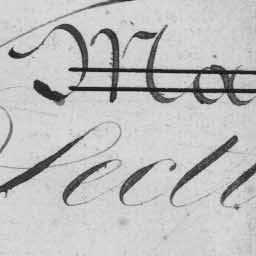 Ma
Sectt